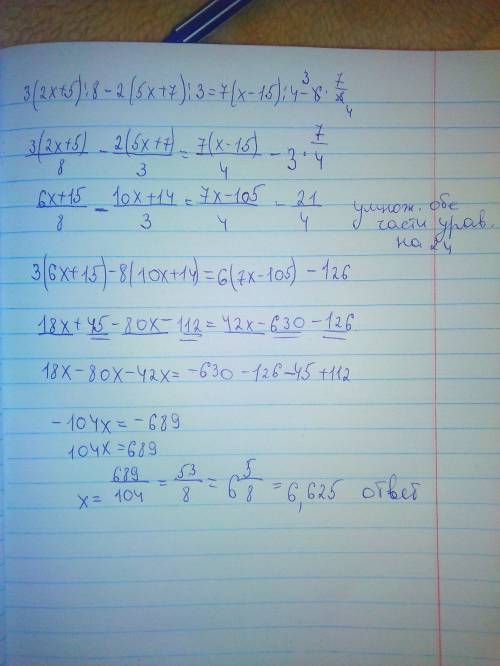 3(2x+5):8-2(5x+7):3=7(x-15):4-6³·7/8₄
3(2x+5)/8 - 2(5x+7)/3 = 7(x-15)/4 - 3·7/4
6x+15/8 - 10x+14/3 = 7x-105/4 - 21/4 умнож. обе части урав. на 24
3(6x+15)-8(10x+14)=6(7x-105)-126
18x+45-80x-112=42x-630-126
18x-80x-42x=-630-126-45+112
-104x=-689
104x=689
x=689/104=53/8=6 5/8=6,625 ответ